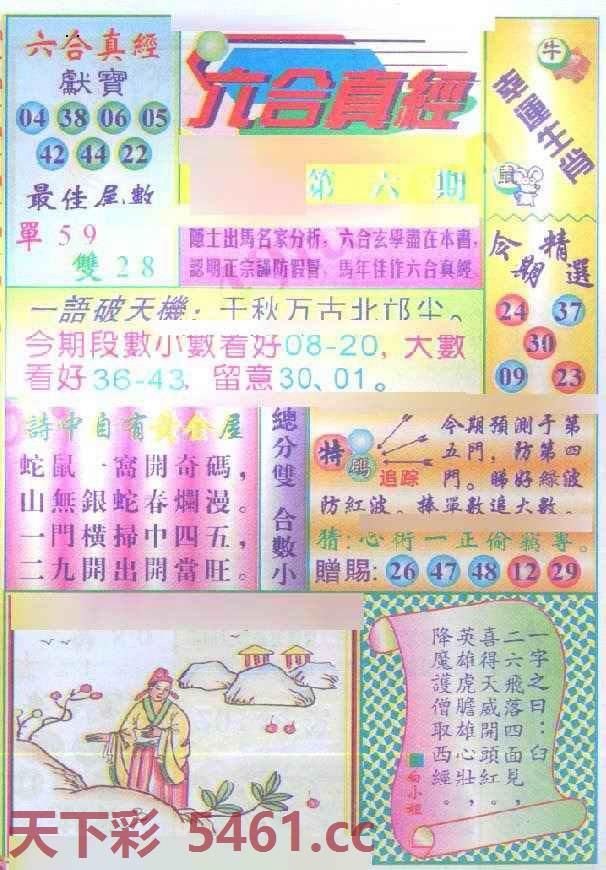 六合真經
獻寶
04 38 06 05
42 44 22
最佳尾數
單59
雙28
六合真經
第六期
隱士出馬名家分析，六合玄學盡在本書，
認明正宗謹防假冒，馬年佳作六合真經
牛
幸運生肖
鼠
今期精選
24 37
30
09 23
一語破天機：千秋万古北邙尘。
今期段數小數看好08-20，大數
看好36-43，留意30、01。
詩中自有黄金屋
蛇鼠一窩開奇碼，
山無銀蛇春爛漫。
一門橫掃中四五，
二九開出開當旺。
總分雙 合數小
特碼
追踪
今期預測于第
五門，防第四
門。睇好綠波
防紅波。捧單數追大數。
猜：心術一正偷竊專。
贈賜：26 47 48 12 29
一字之曰：臼
二六飛落四面見，
喜得天威開頭紅。
英雄虎膽雄心壯，
降魔護僧取西經。
白小姐
天下彩 5461.cc